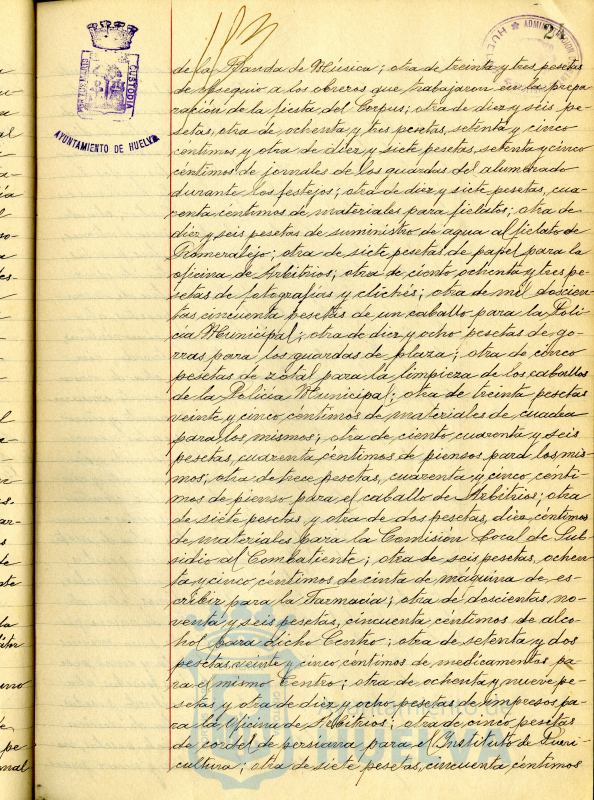 24
de la Banda de Música; otra de treinta y tres pesetas
de obsequio a los obreros que trabajaron en la prepa-
ración de la fiesta del Corpus; otra de diez y séis pe-
setas, otra de ochenta y tres pesetas, setenta y cinco
centimos y otra de diez y siete pesetas, setenta y cinco
céntimos de jornales de los guardas del alumbrado
durante los festejos; otra de diez y siete pesetas, cua-
renta céntimos de materiales para fielatos; otra de
diez y seis pesetas de suministro de agua al fielato de
Romeralejo; otra de siete pesetas de papel para la
oficina de Arbitrios; otra de ciento ochenta y tres pe-
setas de fotografías y clichés; otra de mil doscien-
tas cincuenta pesetas de un caballo para la Poli-
cía Municipal; otra de diez y ocho pesetas de go-
rras para los guardas de plaza; otra de cinco
pesetas de zotal para la limpieza de los caballos
de la Policía Municipal; otra de treinta pesetas
veinte y cinco céntimos de materiales de cuadra
para los mismos; otra de ciento cuarenta y seis
pesetas, cuarenta céntimos de piensos para los mis-
mos; otra de trece pesetas, cuarenta y cinco cénti-
mos de pienso para el caballo de Arbitrios; otra
de siete pesetas y otra de dos pesetas, diez céntimos
de materiales para la Comisión Local de Sub-
sidio al Combatiente; otra de seis pesetas, ochen-
ta y cinco céntimos de cinta de máquina de es-
cribir para la Farmacia; otra de doscientas no-
venta y seis pesetas, cincuenta céntimos de alco-
hol para dicho Centro; otra de setenta y dos
pesetas, veinte y cinco céntimos de medicamentos pa-
ra el mismo Centro; otra de ochenta y nueve pe-
setas y otra de diez y ocho pesetas de impresos pa-
ra la Oficina de Arbitrios; otra de cinco pesetas
de cordel de persiana para el Instituto de Pueri-
cultura; otra de siete pesetas, cincuenta céntimos
CUSTODIA
AYUNTAMIENTO DE HUELVA
HUELVA